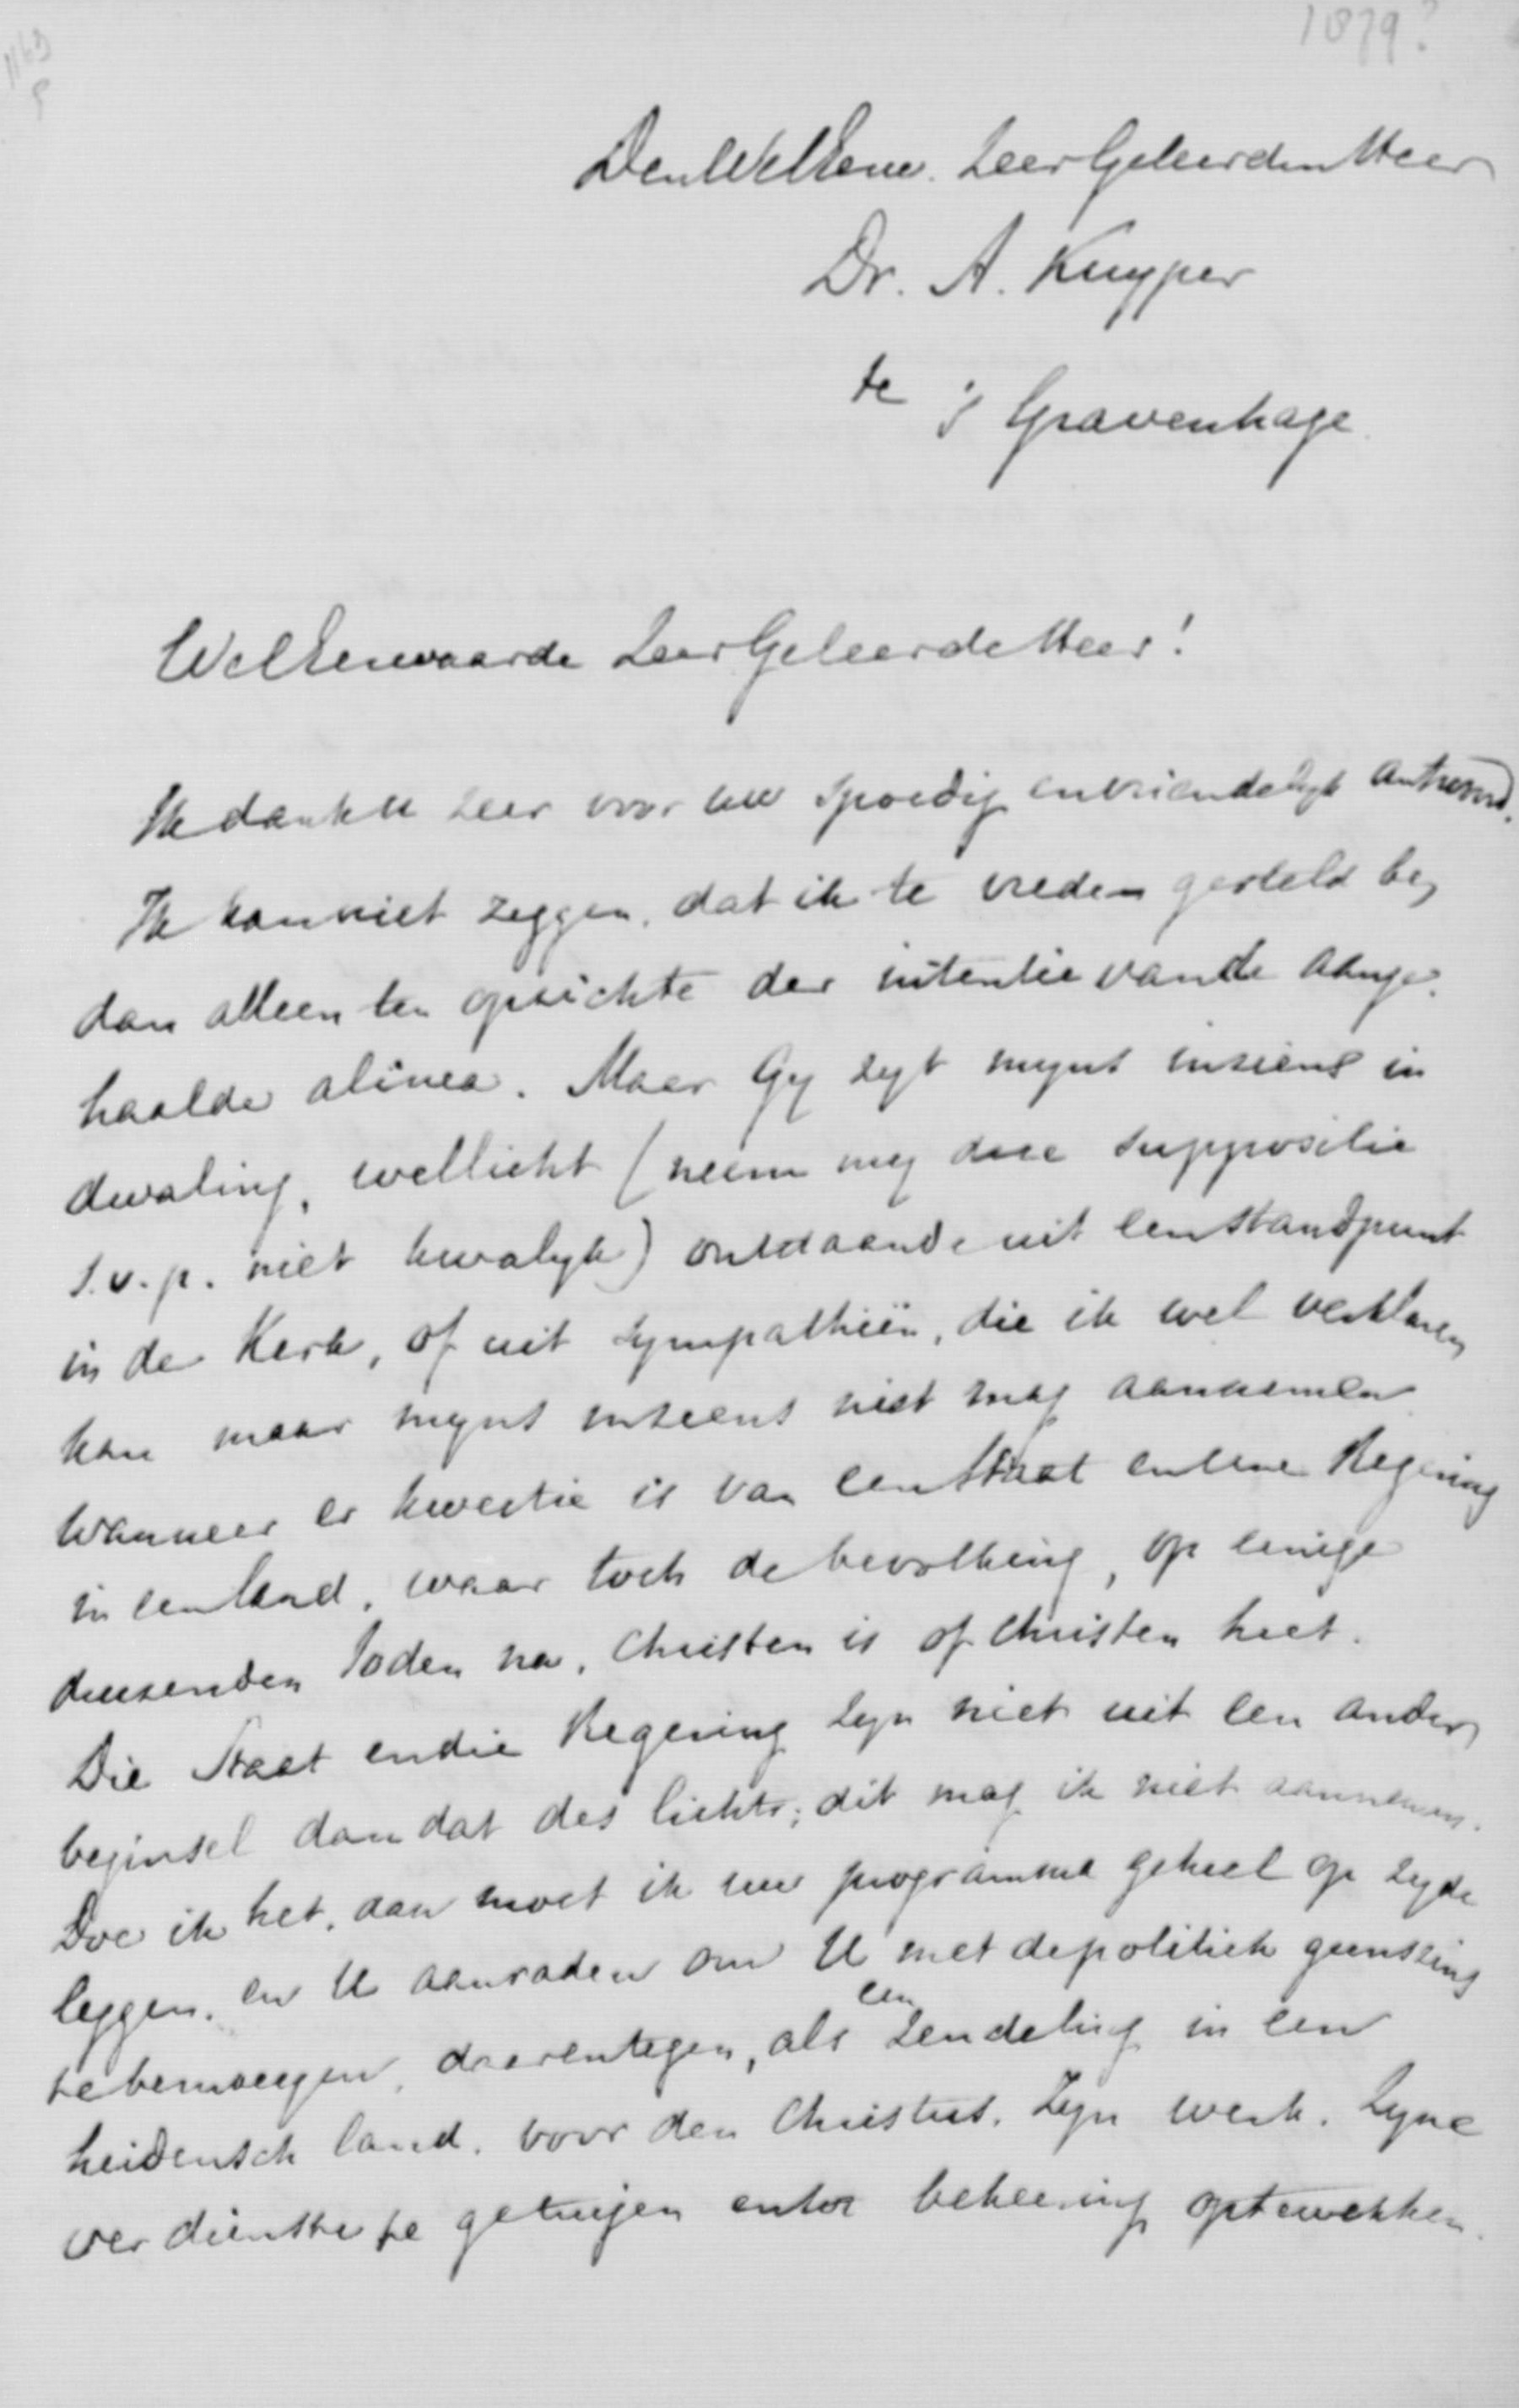 1879?
Den WelEerw. Zeer Geleerden Heer
Dr. A. Kuyper
te 's Gravenhage
WelEerwaarde Zeer Geleerde Heer!
Ik dank U zeer voor uw spoedig en vriendelyk antwoord.
Ik kan niet zeggen, dat ik te vreden gesteld ben
dan alleen ten opzichte der intentie van de aange-
haalde alinea. Maar Gy zyt myns inziens in
dwaling, wellicht (neem my deze suppositie
s.v.p. niet kwalyk) ontstaande uit een standpunt
in de Kerk, of uit sympathiën, die ik wel verklaren
kan maar myns inziens niet mag aannemen
wanneer er kwestie is van een Staat en eene Regering
in een land, waar toch de bevolking, op eenige
duizenden Joden na, Christen is of Christen heet.
Die Staat en die Regering zyn niet uit een ander
beginsel dan dat des lichts; dit mag ik niet aannemen.
Doe ik het, dan moet ik uw programma geheel op zyde
leggen, en U aanraden om U met de politiek geenszins
te bemoeyen, daarentegen, als een zendeling in een
heidensch land, voor den Christus, Zyn werk, Zyne
verdienste te getuigen en tot bekeering optewekken.